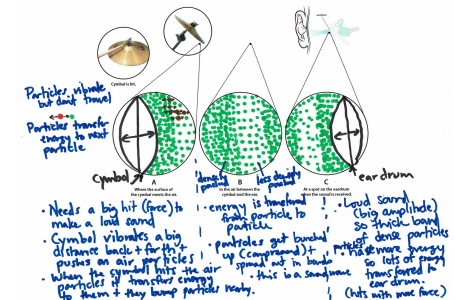 eardrum
Cymbal is hit.
Particles vibrate
but don't travel
Particles transfer
energy to next
particle
A
B
C
Where the surface of
the cymbal meets the air.
In the air between the
cymbal and the ear.
At a spot on the eardrum
when the sound is received.
cymbal
density
less density
ear drum
• Needs a big hit (force) to
make a loud sound
• Cymbal vibrates a big
distance back + forth +
pushes on air particles
• When the cymbal hits the air
particles it transfers energy
to them + they bump particles nearby.
• energy is transferred
from particle to
particle
• particles get bunched
up (compressed) +
spread out in bands
• this is a sandwave
• Loud sound
(big amplitude)
so thick band
of dense particles
• has more energy
so lots of energy
transferred to
ear drum.
(hits with more force)